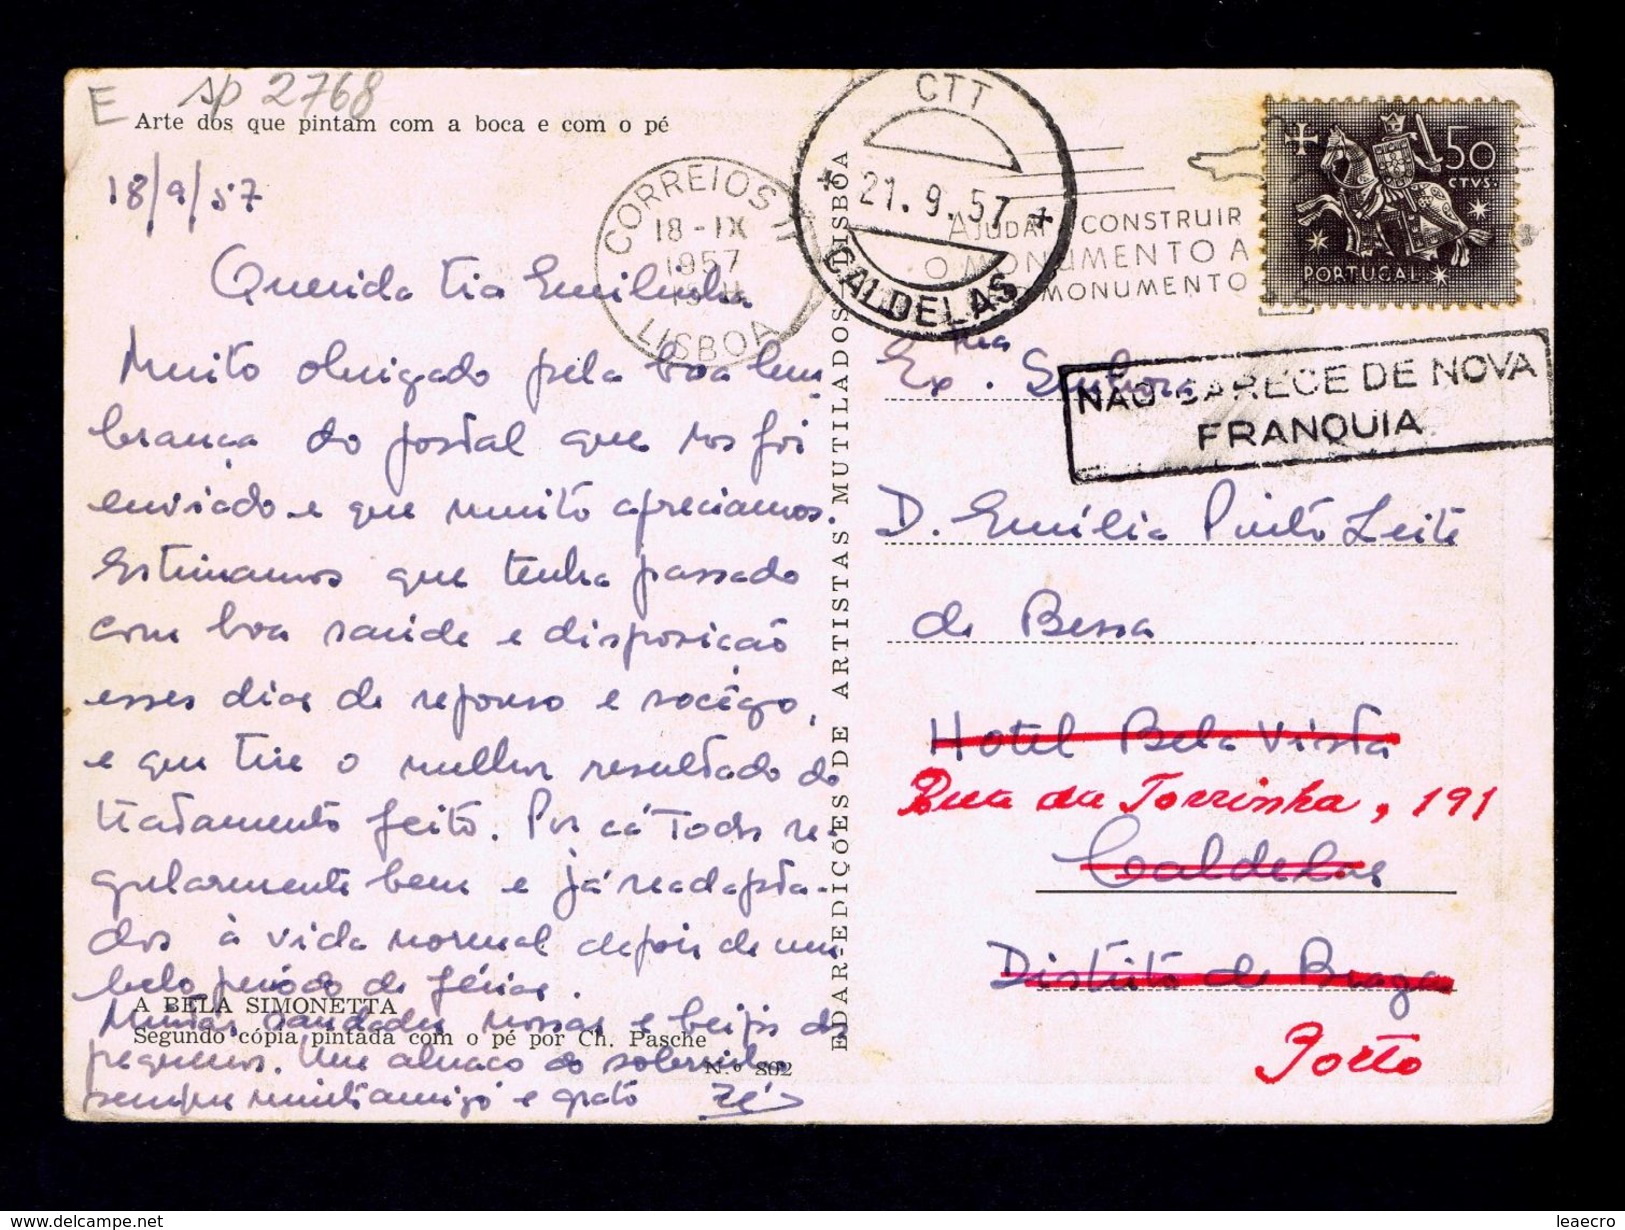 E sp 2768
Arte dos que pintam com a boca e com o pé
18/9/57
Querida tia Emilinha
Muito obrigado pela boa lem
brança do postal que nos foi
enviado e que muito apreciamos.
Estimamos que tenha passado
com boa saúde e disposição
esses dias de repouso e socêgo,
e que tire o melhor resultado do
tratamento feito. Por cá todos re-
gularmente bem e já readapta-
dos à vida normal depois de um
belo período de férias.
Muitas saudades nossas e beijos dos
pequenos. Um abraço do sobrinho
sempre muito amigo e grato Zé
A BELA SIMONETTA
Segundo cópia pintada com o pé por Ch. Pasche
N.º 802
EDAR-EDIÇÕES DE ARTISTAS MUTILADOS LISBOA
CORREIOS
18-IX
1957
LISBOA
CTT
21.9.57
CALDELAS
AJUDAI A CONSTRUIR
O MONUMENTO A
MONUMENTO
50
CTVS.
PORTUGAL
NÃO CARECE DE NOVA
FRANQUIA
Ex.ma Senhora
D. Emília Pinto Leite
de Bessa
Hotel Bela Vista
Rua da Torrinha, 191
Caldelas
Distrito de Braga
Porto
leaecro
http://www.delcampe.net